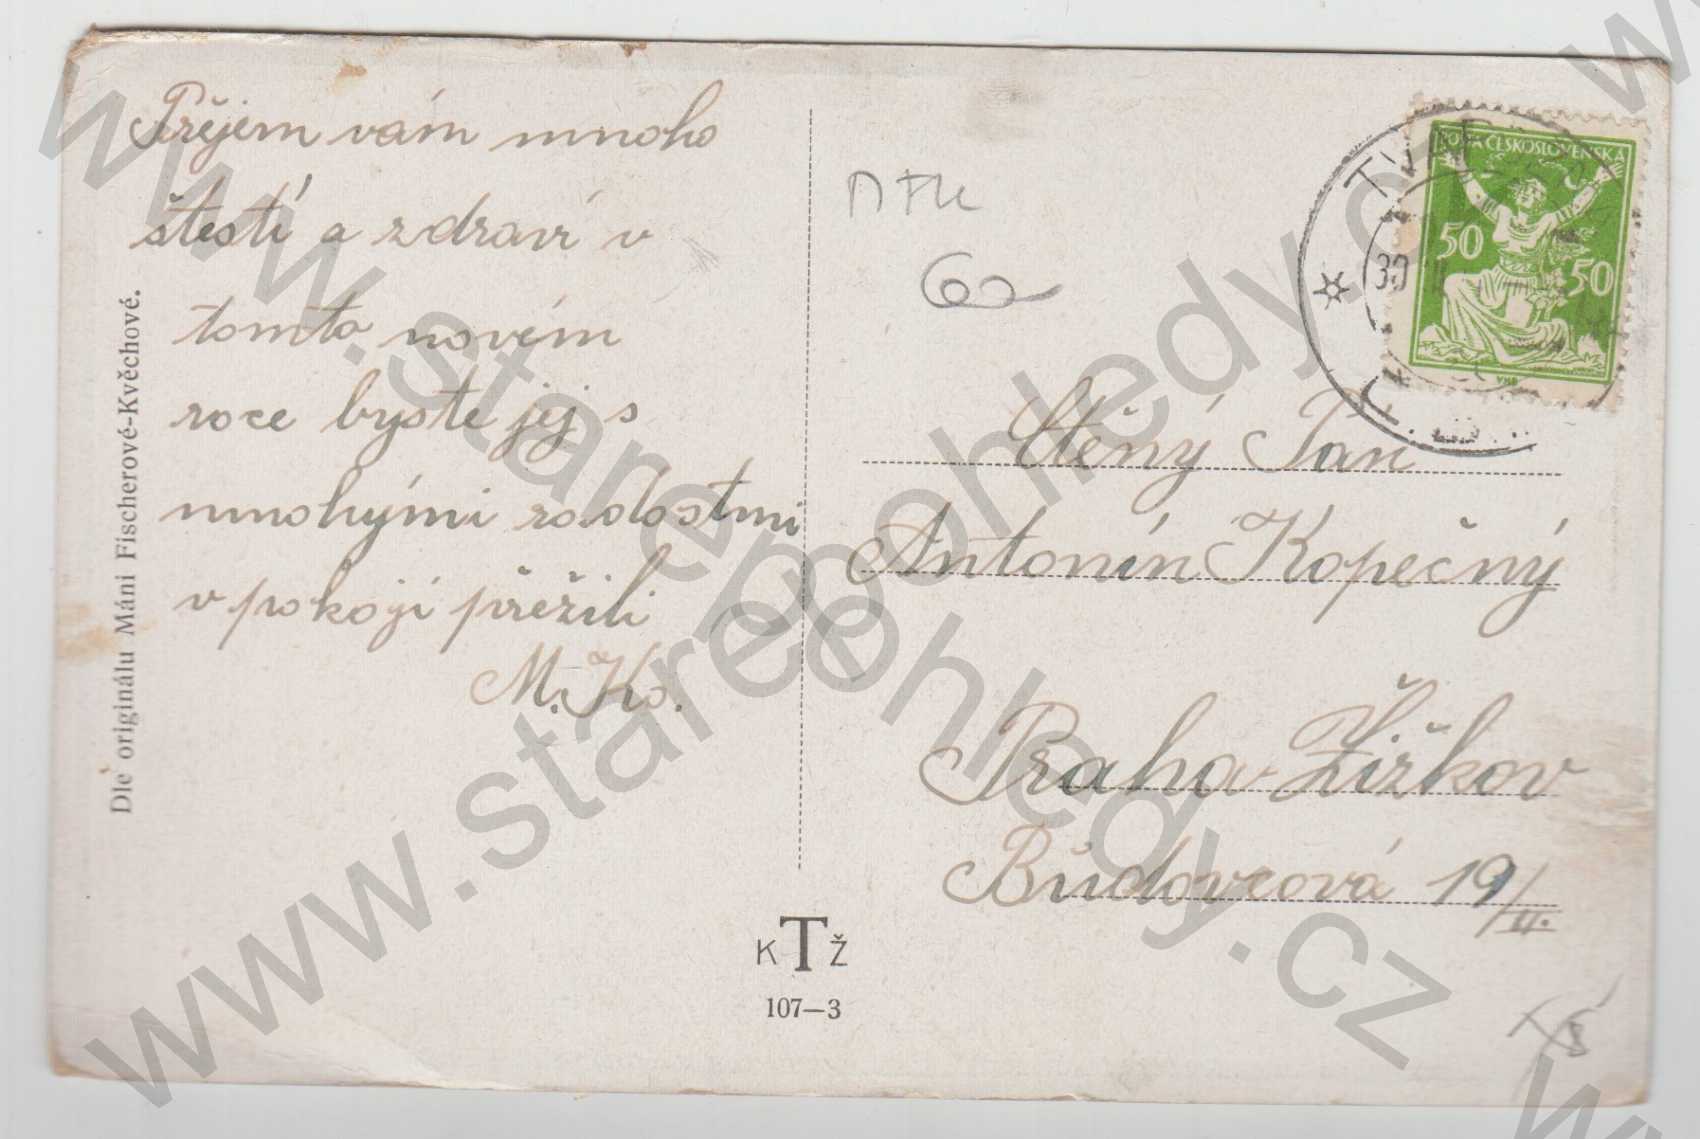 Přejem vám mnoho
štestí a zdraví v
tomto novém
roce byste jej s
mnohými radostmi
v pokoji přežili
M. Ko.
Dle originálu Máni Fischerové-Kvěchové.
K T Ž
107—3
60
POŠTA ČESKOSLOVENSKÁ
50
50
30
Ctěný Pan
Antonín Kopečný
Praha Žižkov
Budovcová 19/II.
www.starepohledy.cz
www.starepohledy.cz